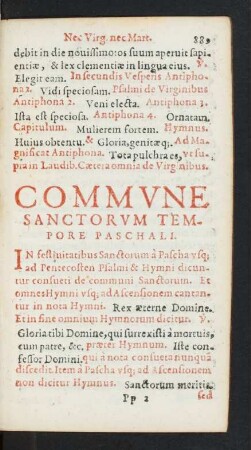 Nec Virg. nec Mart. 889
debit in die nouissimo: os suum aperuit sapi-
entiæ, & lex clementiæ in lingua eius. ℣.
Elegit eam. In secundis Vesperis Antipho-
na 1. Vidi speciosam. Psalmi de Virginibus
Antiphona 2. Veni electa. Antiphona 3.
Ista est speciosa. Antiphona 4. Ornatam
Capitulum. Mulierem fortem. Hymnus.
Huius obtentu. & Gloria, genitæq;. Ad Ma-
gnificat Antiphona. Tota pulchra es, vt su-
pra in Laudib. Cætera omnia de Virginibus.
COMMVNE
SANCTORVM TEM-
PORE PASCHALI.
IN festiuitatibus Sanctorum à Pascha vsq;
ad Pentecosten Psalmi & Hymni dicun-
tur consueti de communi Sanctorum. Et
omnes Hymni vsq; ad Ascensionem cantan-
tur in nota Hymni. Rex æterne Domine.
Et in fine omnium Hymnorum dicitur. ℣.
Gloria tibi Domine, qui surrexisti à mortuis,
cum patre, &c. præter Hymnum. Iste con-
fessor Domini. qui à nota consueta nunquā
discedit. Item à Pascha vsq; ad Ascensionem
non dicitur Hymnus. Sanctorum meritis.
Pp 2 sed